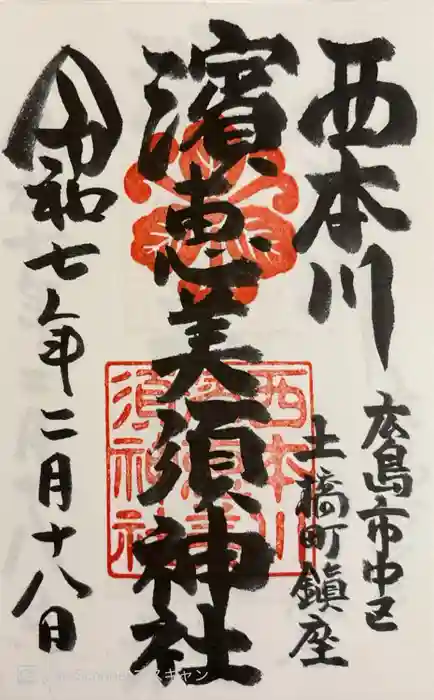 西本川
広島市中区
土橋町鎮座
濱恵美須神社
令和七年二月十八日
西本川
濱恵美
須神社